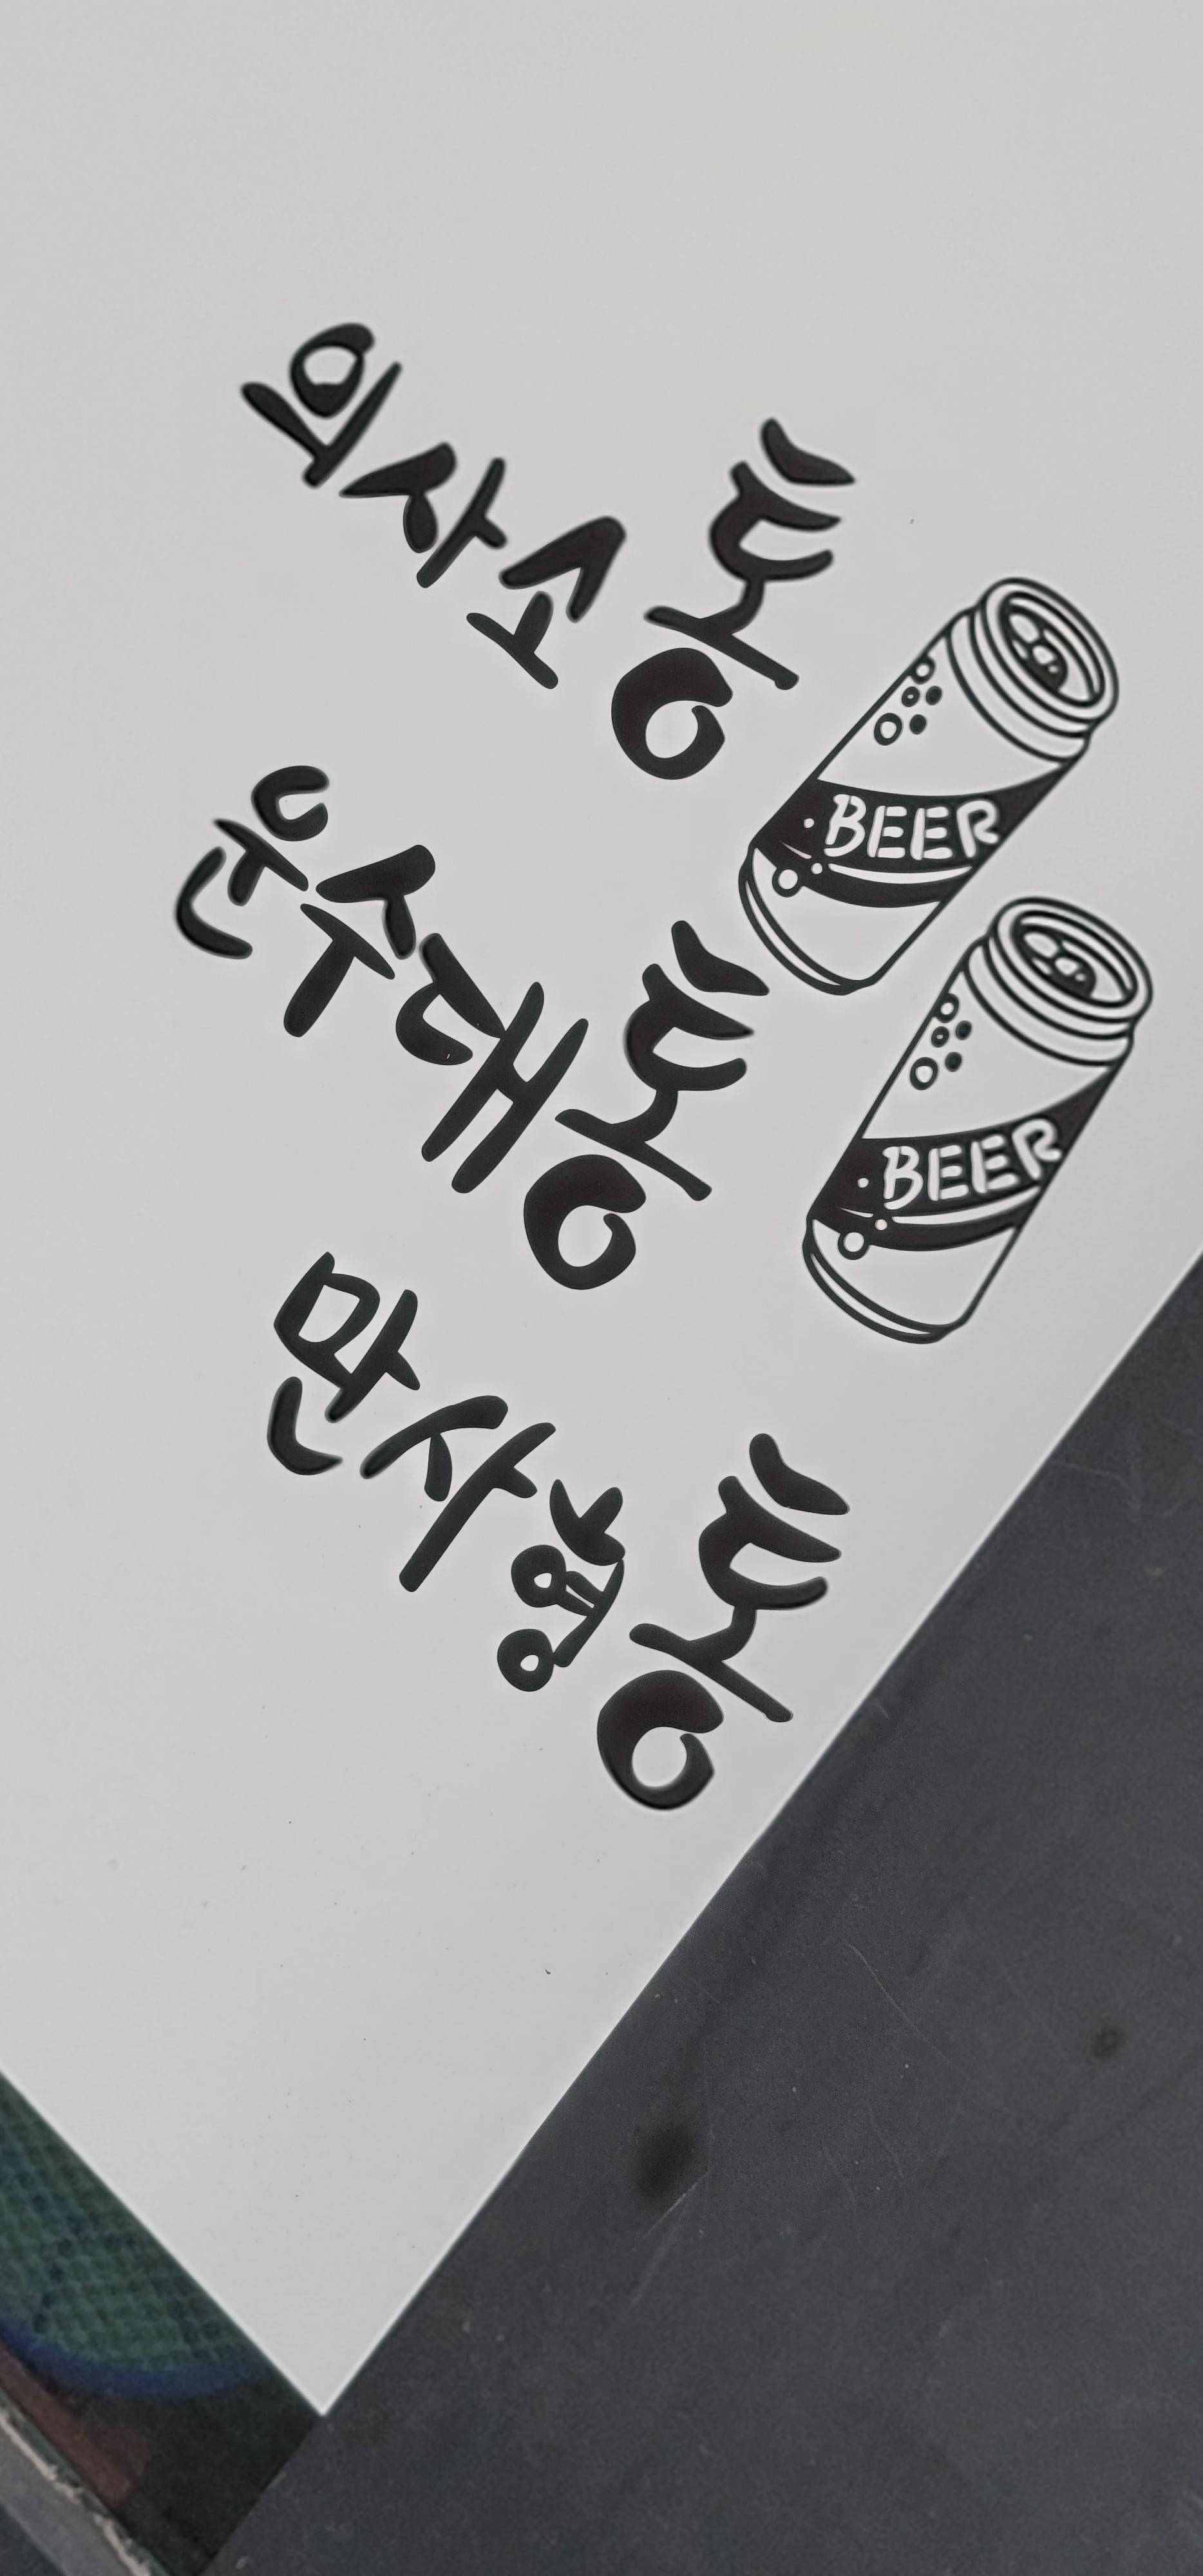 의사소통
운수대통
만사형통
BEER
BEER